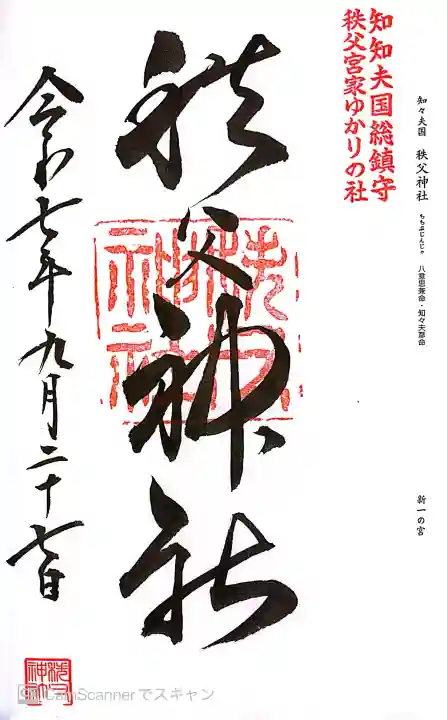 知々夫国 秩父神社 ちちぶじんじゃ 八意思兼命・知々夫彦命 新一の宮
知知夫国総鎮守
秩父宮家ゆかりの社
秩父神社
令和七年九月二十七日
秩父神社
CamScannerでスキャン